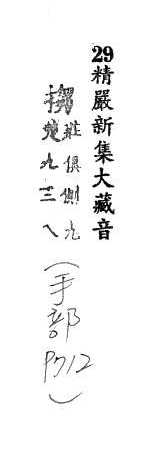 29精嚴新集大藏音
莊俱側九
九三
(手部P712)